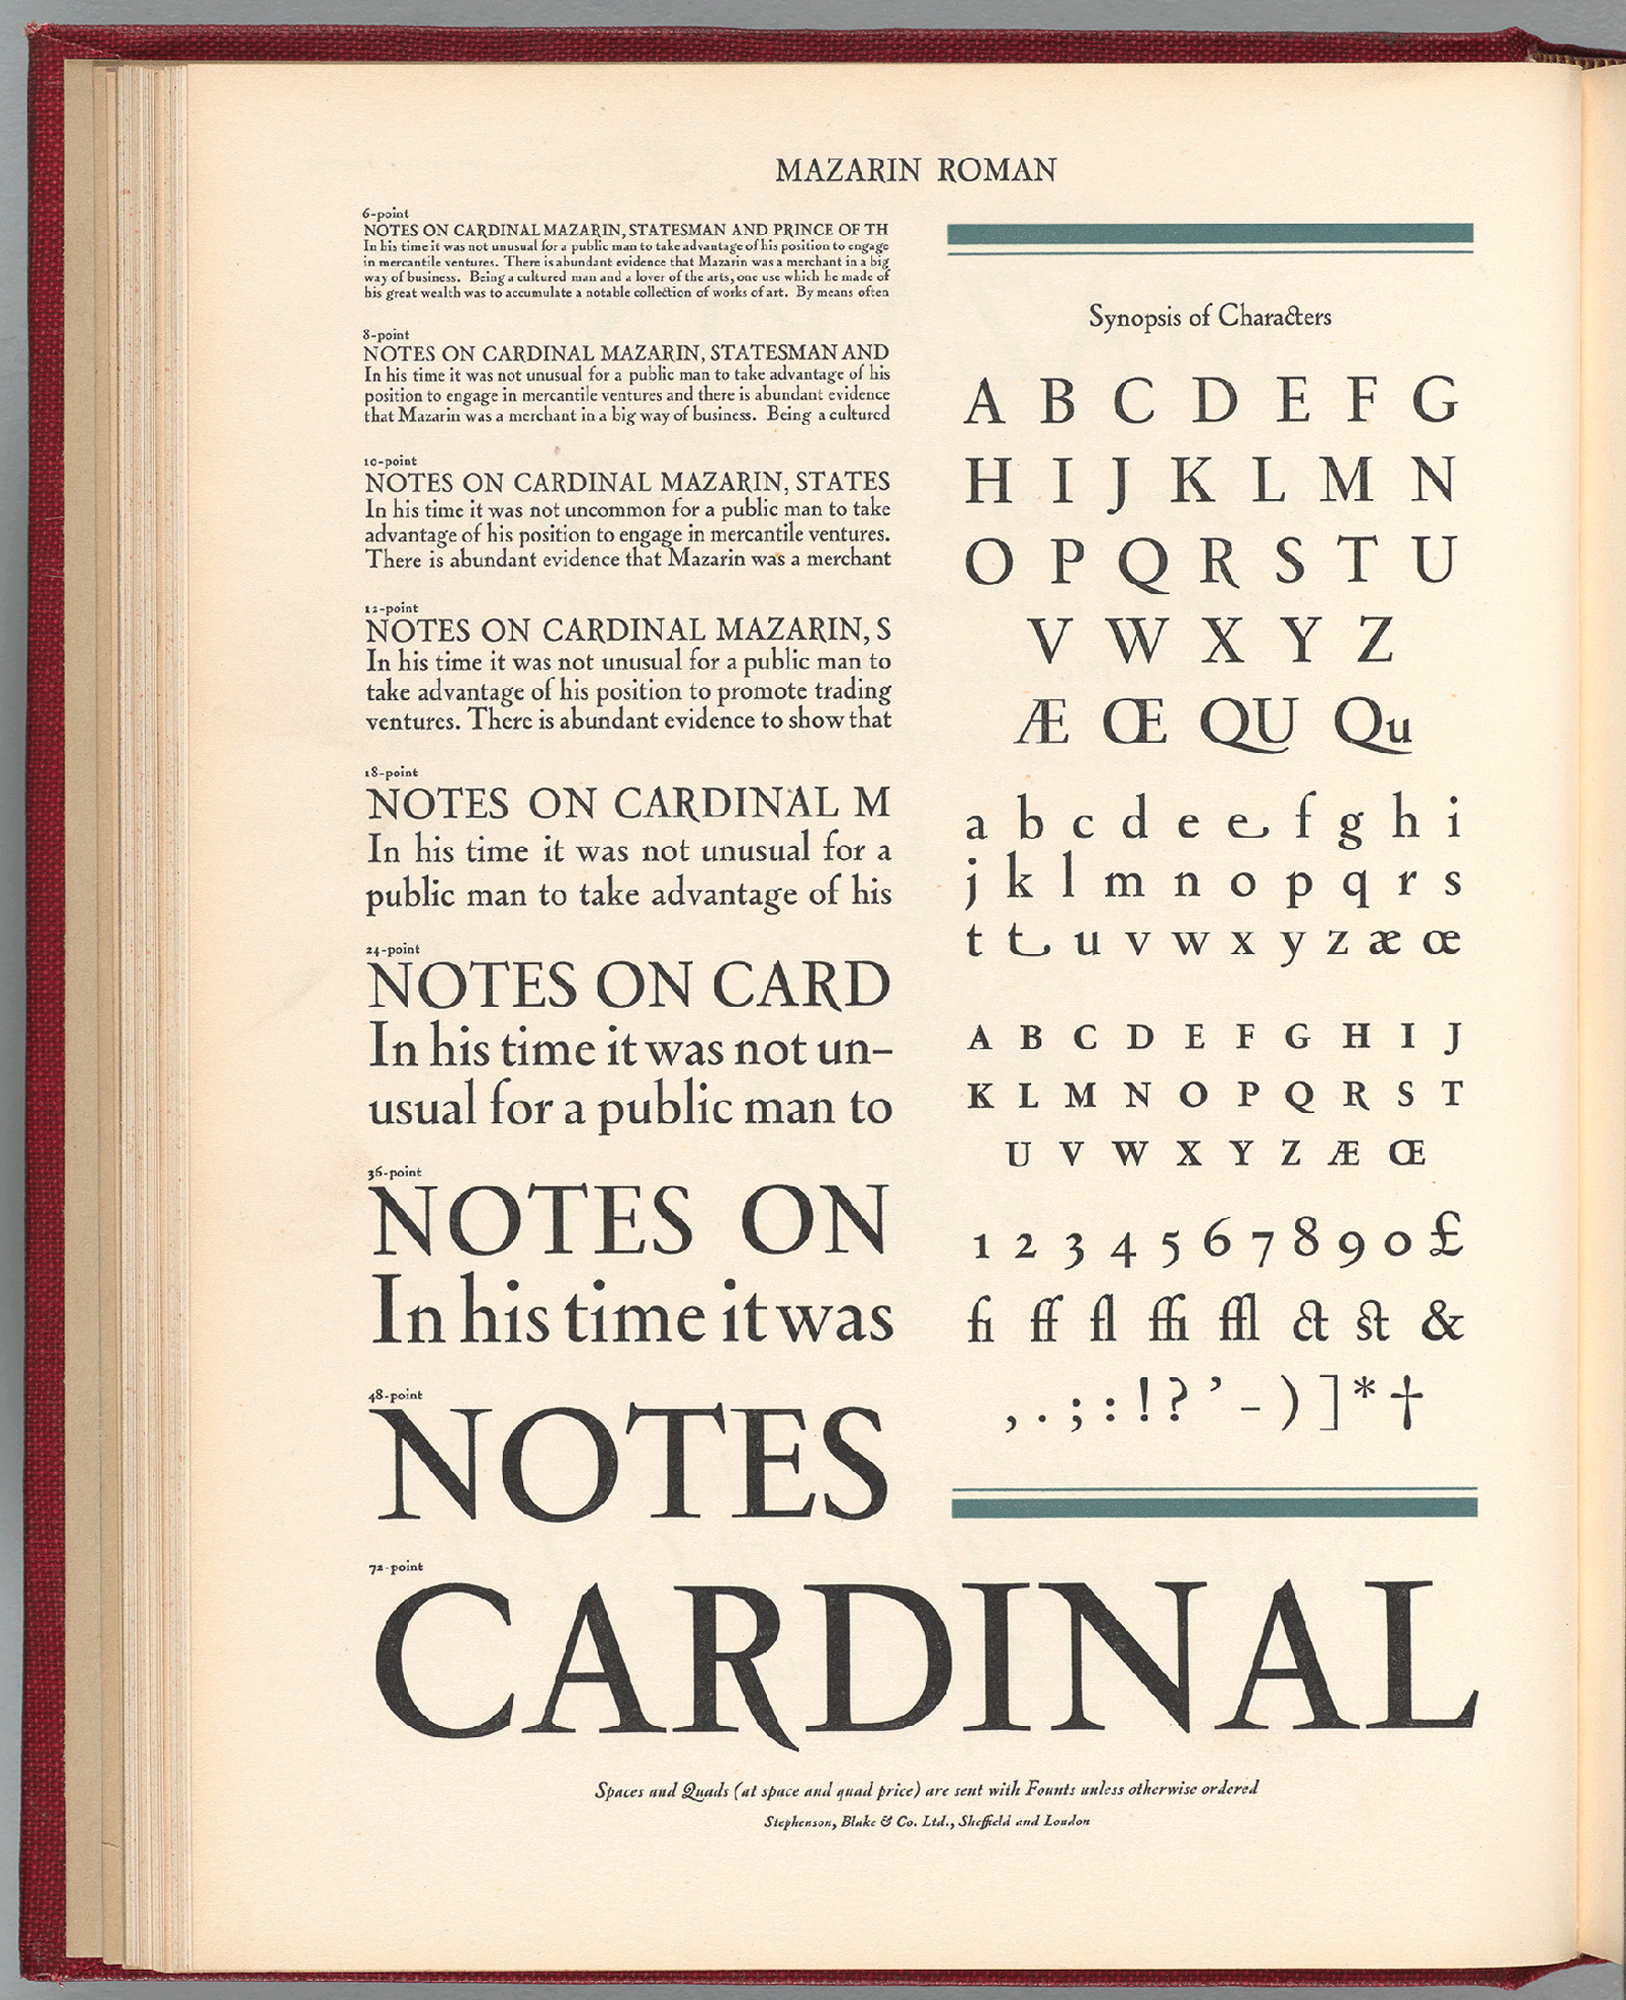 MAZARIN ROMAN
6-point
NOTES ON CARDINAL MAZARIN, STATESMAN AND PRINCE OF TH
In his time it was not unusual for a public man to take advantage of his position to engage
in mercantile ventures. There is abundant evidence that Mazarin was a merchant in a big
way of business. Being a cultured man and a lover of the arts, one use which he made of
his great wealth was to accumulate a notable collection of works of art. By means often
8-point
NOTES ON CARDINAL MAZARIN, STATESMAN AND
In his time it was not unusual for a public man to take advantage of his
position to engage in mercantile ventures and there is abundant evidence
that Mazarin was a merchant in a big way of business. Being a cultured
10-point
NOTES ON CARDINAL MAZARIN, STATES
In his time it was not uncommon for a public man to take
advantage of his position to engage in mercantile ventures.
There is abundant evidence that Mazarin was a merchant
12-point
NOTES ON CARDINAL MAZARIN, S
In his time it was not unusual for a public man to
take advantage of his position to promote trading
ventures. There is abundant evidence to show that
18-point
NOTES ON CARDINAL M
In his time it was not unusual for a
public man to take advantage of his
24-point
NOTES ON CARD
In his time it was not un-
usual for a public man to
36-point
NOTES ON
In his time it was
48-point
NOTES
Synopsis of Characters
A B C D E F G
H I J K L M N
O P Q R S T U
V W X Y Z
Æ Œ QU Qu
a b c d e e f g h i
j k l m n o p q r s
t t u v w x y z æ œ
A B C D E F G H I J
K L M N O P Q R S T
U V W X Y Z Æ Œ
1 2 3 4 5 6 7 8 9 0 £
fi ff fl ffi ffl ct st &
, . ; : ! ? ’ - ) ] * †
72-point
CARDINAL
Spaces and Quads (at space and quad price) are sent with Founts unless otherwise ordered
Stephenson, Blake & Co. Ltd., Sheffield and London